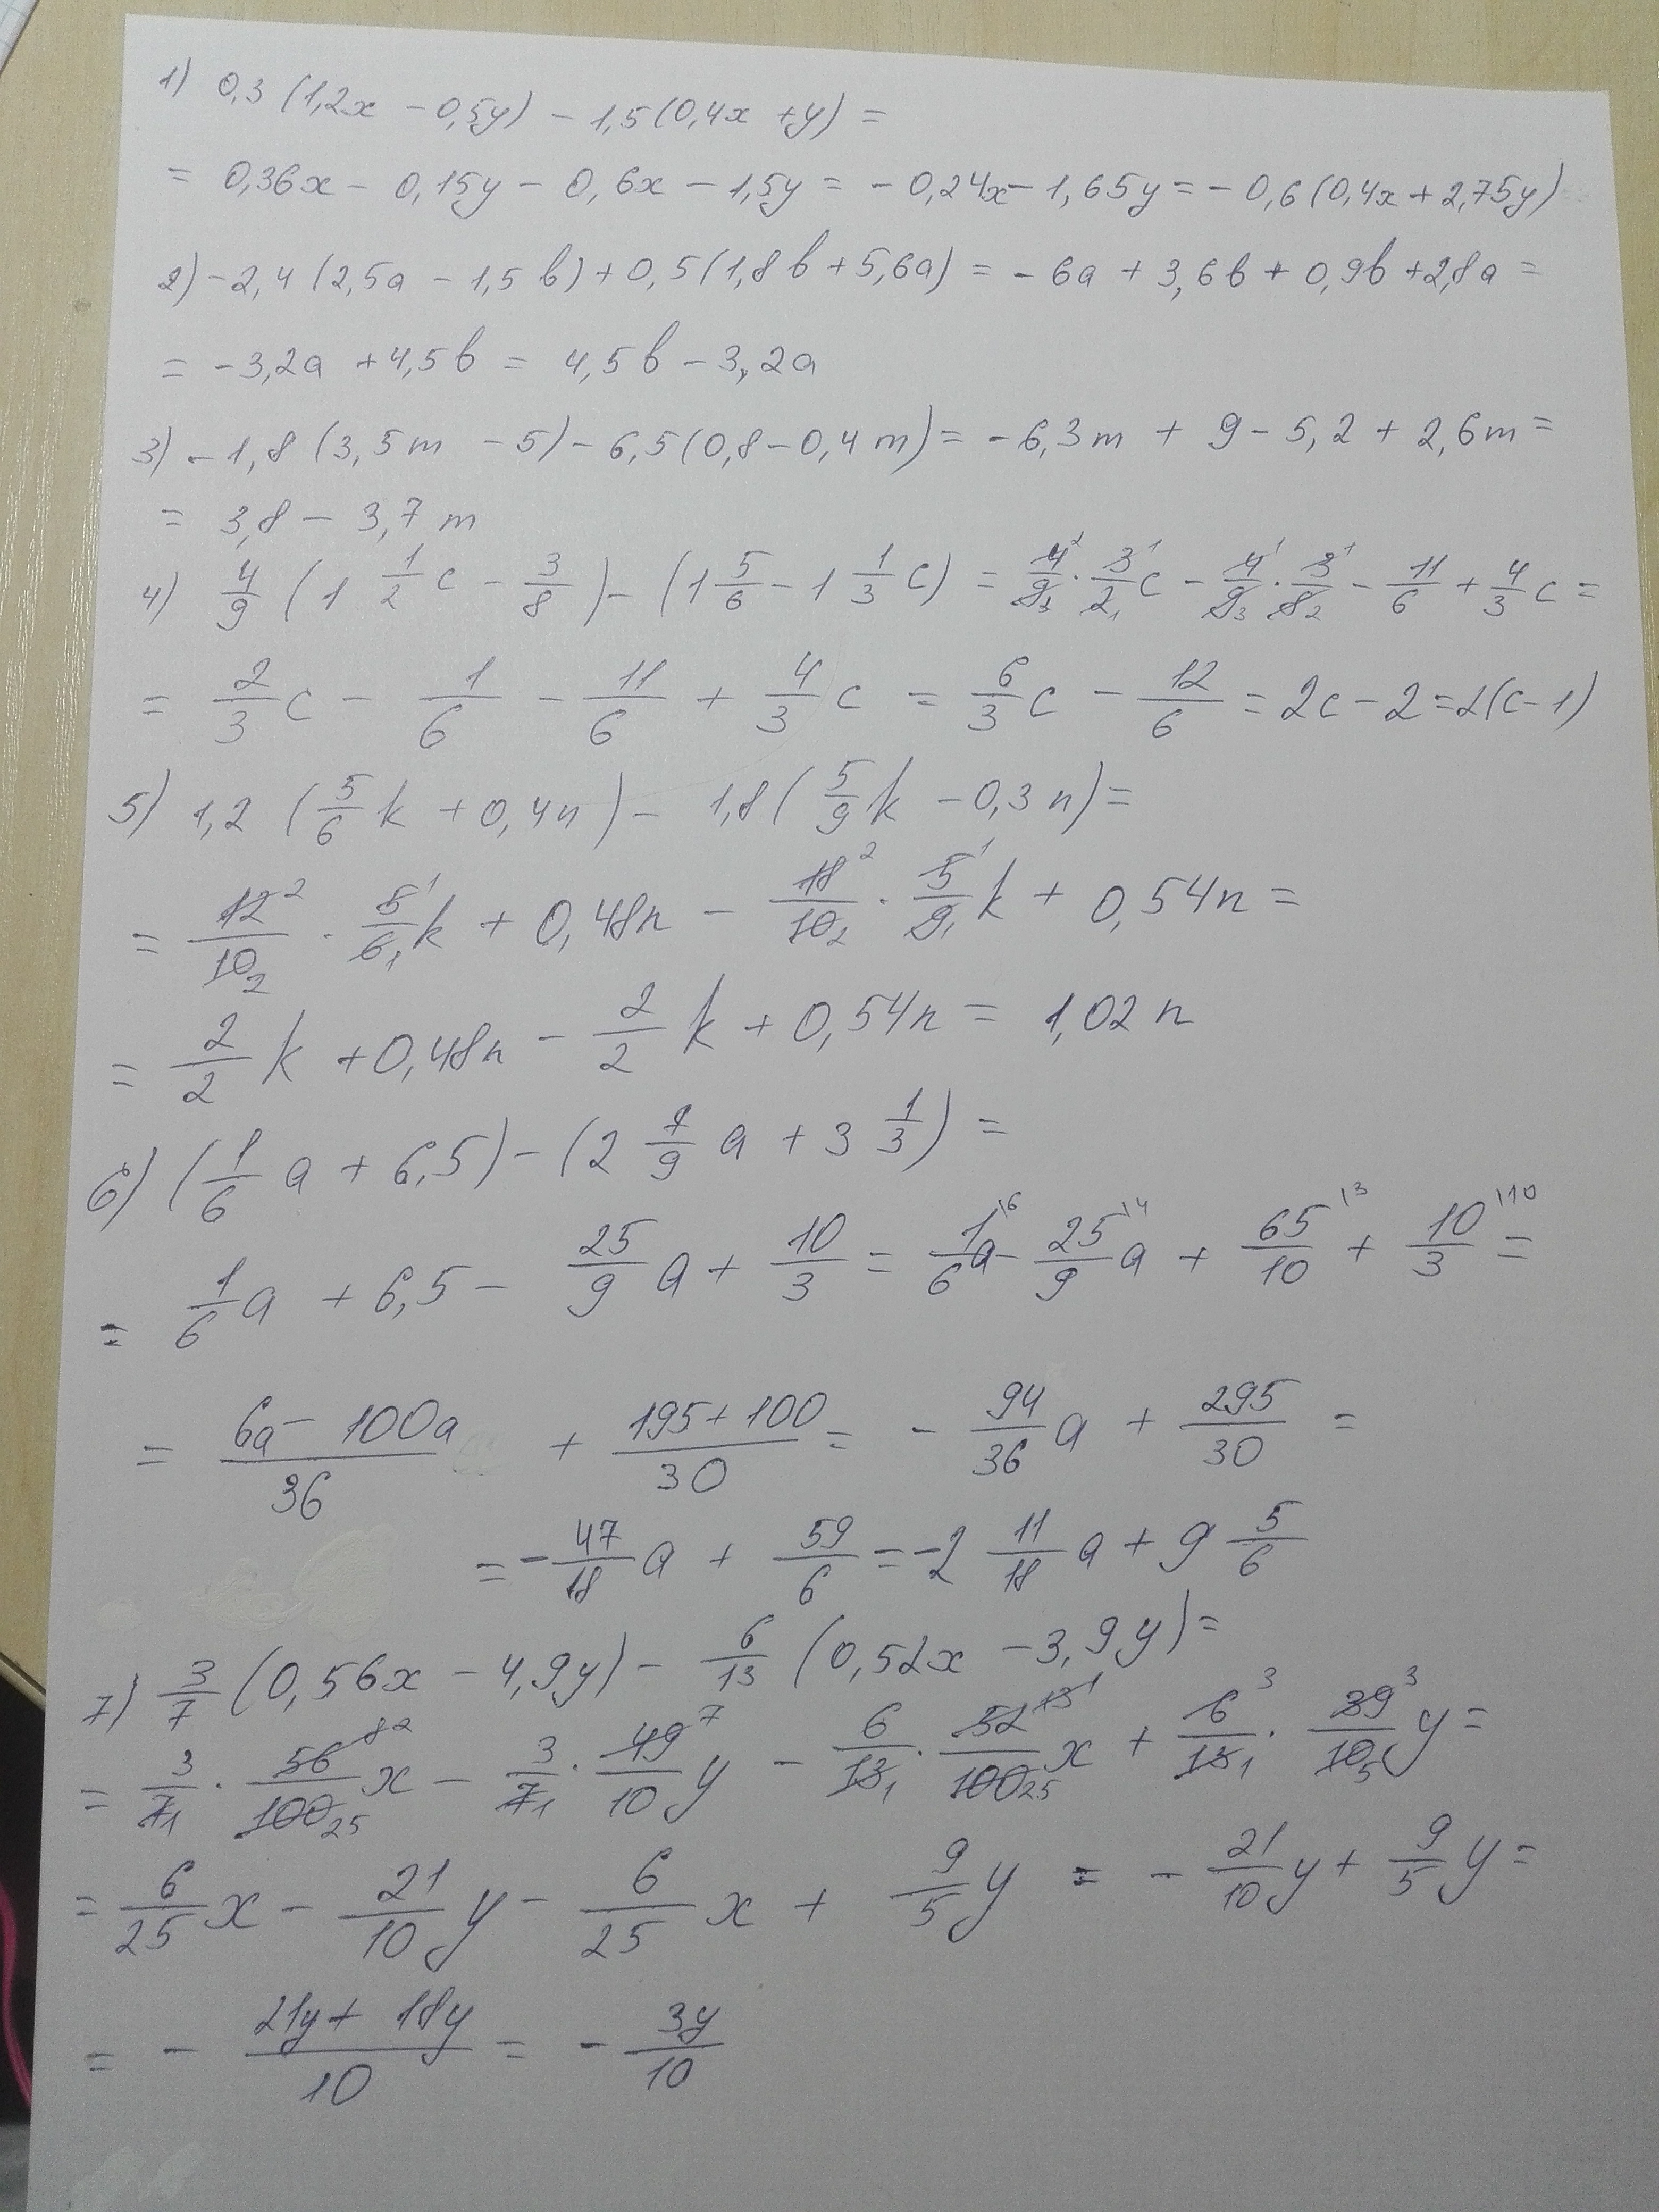 1) 0,3 (1,2x - 0,5y) - 1,5 (0,4x + y) =
= 0,36x - 0,15y - 0,6x - 1,5y = - 0,24x - 1,65y = - 0,6 (0,4x + 2,75y)
2) -2,4 (2,5a - 1,5b) + 0,5 (1,8b + 5,6a) = - 6a + 3,6b + 0,9b + 2,8a =
= -3,2a + 4,5b = 4,5b - 3,2a
3) -1,8 (3,5m - 5) - 6,5 (0,8 - 0,4m) = - 6,3m + 9 - 5,2 + 2,6m =
= 3,8 - 3,7m
4) 4/9 (1 1/2 c - 3/8) - (1 5/6 - 1 1/3 c) = 4/9 · 3/2 c - 4/9 · 3/8 - 11/6 + 4/3 c =
= 2/3 c - 1/6 - 11/6 + 4/3 c = 6/3 c - 12/6 = 2c - 2 = 2(c - 1)
5) 1,2 (5/6 k + 0,4n) - 1,8 (5/9 k - 0,3n) =
= 12/10 · 5/6 k + 0,48n - 18/10 · 5/9 k + 0,54n =
= 2/2 k + 0,48n - 2/2 k + 0,54n = 1,02n
6) (1/6 a + 6,5) - (2 7/9 a + 3 1/3) =
= 1/6 a + 6,5 - 25/9 a + 10/3 = 1/6 a - 25/9 a + 65/10 + 10/3 =
= (6a - 100a)/36 + (195 + 100)/30 = - 94/36 a + 295/30 =
= - 47/18 a + 59/6 = -2 11/18 a + 9 5/6
7) 3/7 (0,56x - 4,9y) - 6/13 (0,52x - 3,9y) =
= 3/7 · 56/100 x - 3/7 · 49/10 y - 6/13 · 52/100 x + 6/13 · 39/10 y =
= 6/25 x - 21/10 y - 6/25 x + 9/5 y = - 21/10 y + 9/5 y =
= - (21y + 18y)/10 = - 3y/10